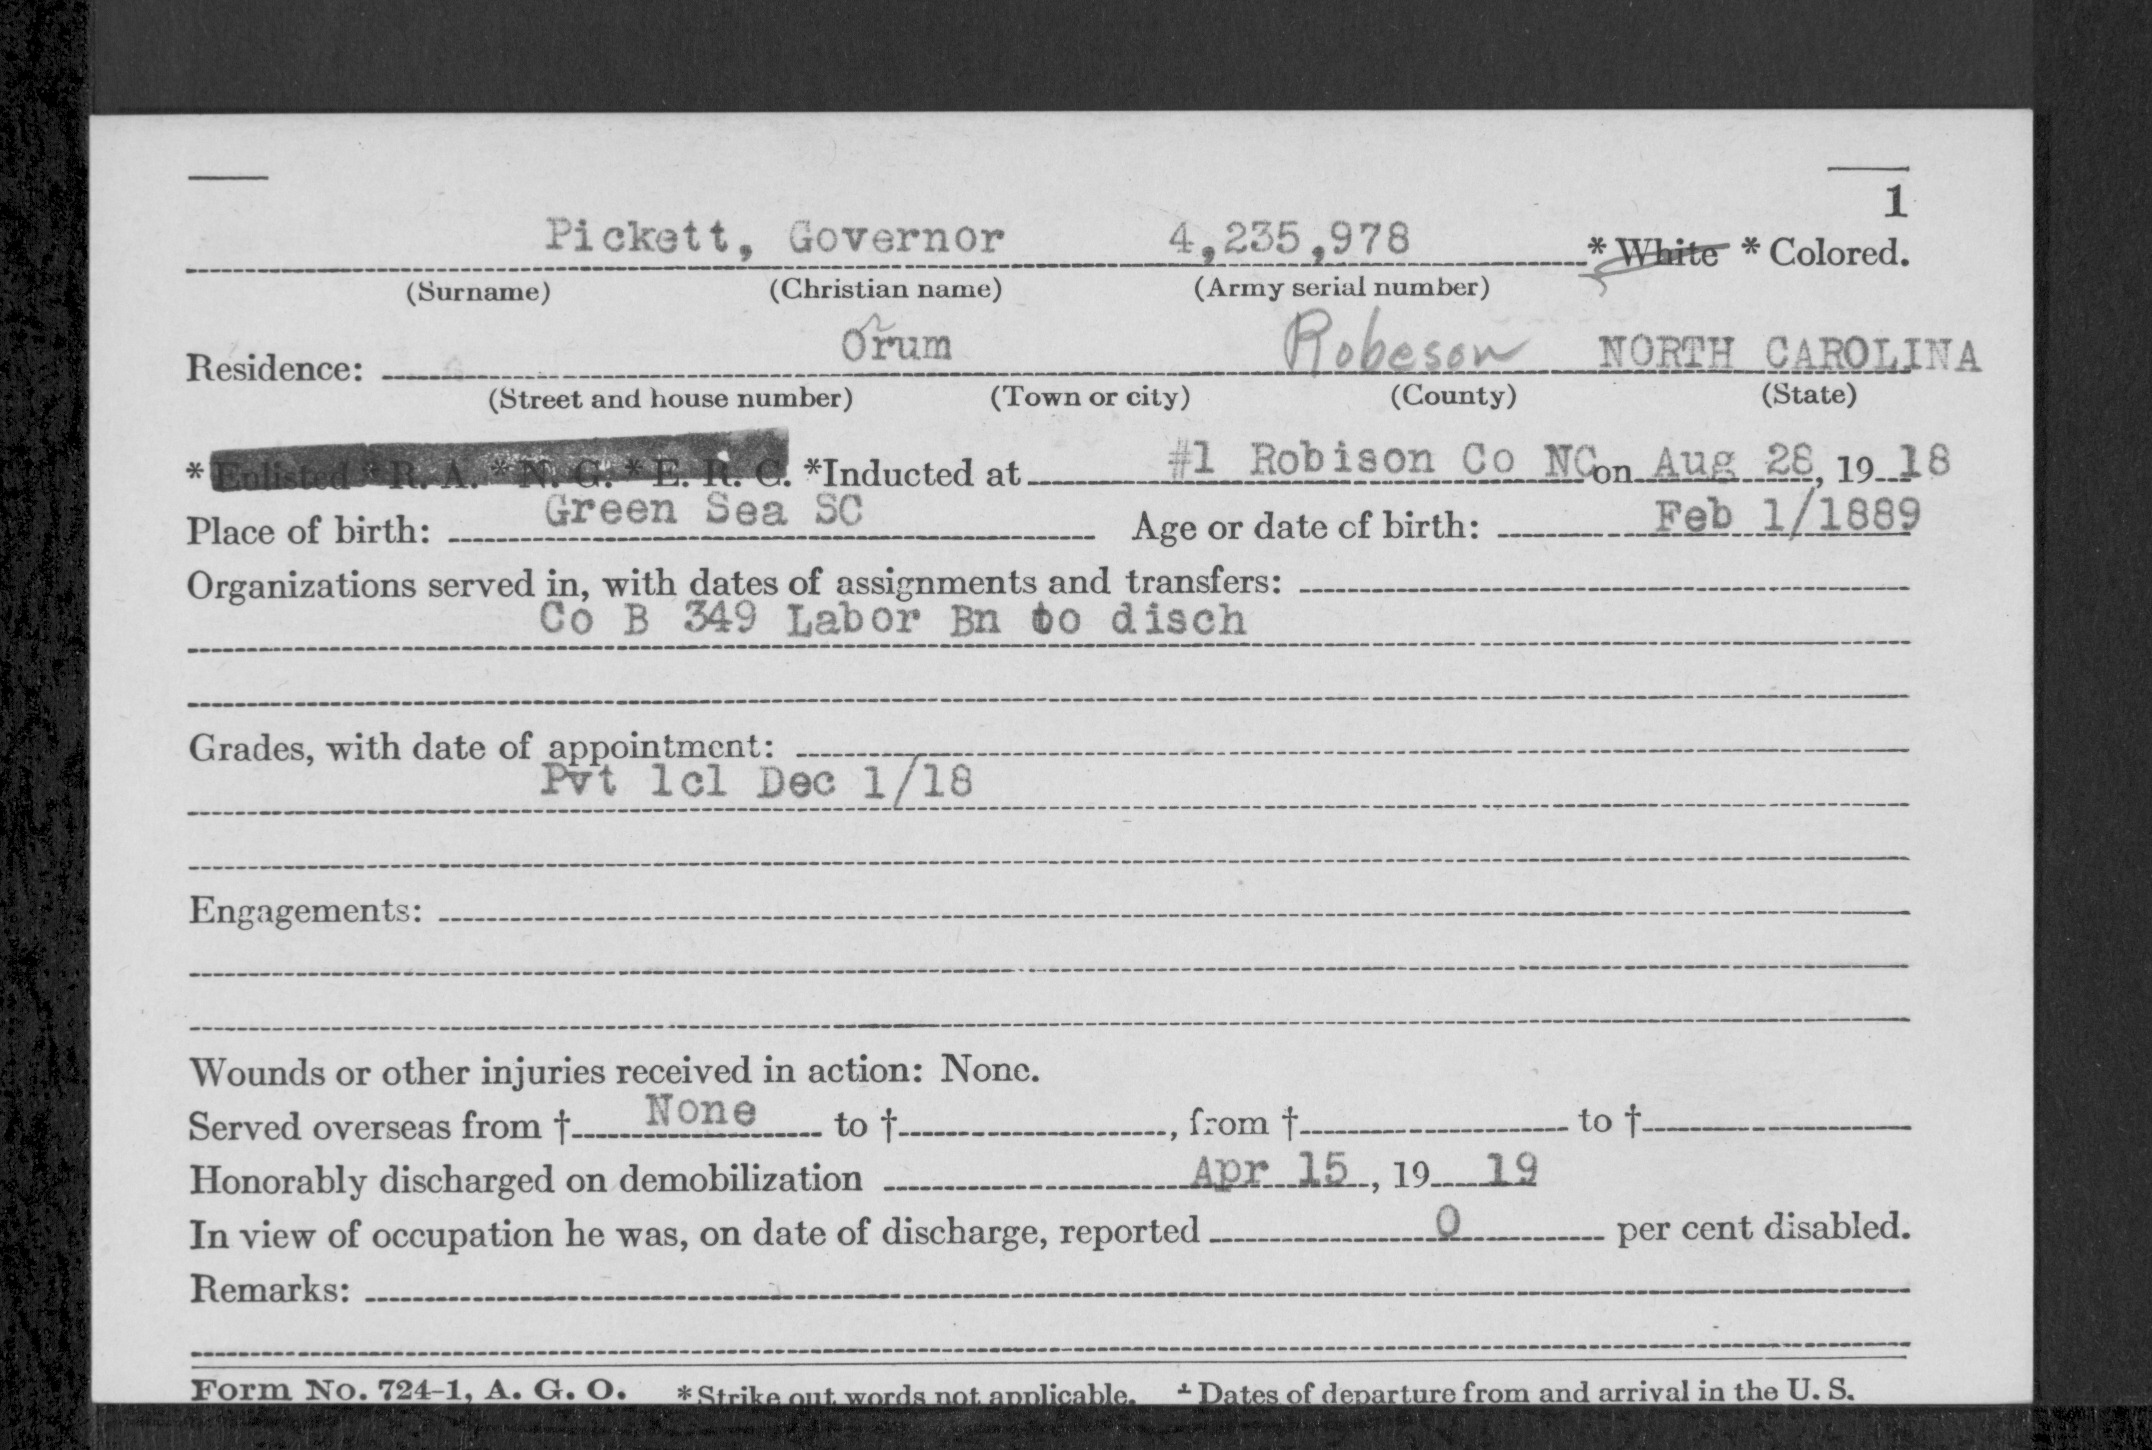 1
Pickett, Governor 4,235,978 * White * Colored.
(Surname) (Christian name) (Army serial number)
Residence: Orum Robeson NORTH CAROLINA
(Street and house number) (Town or city) (County) (State)
* Enlisted * R. A. * N. G. * E. R. C. *Inducted at #1 Robison Co NC on Aug 28, 19 18
Place of birth: Green Sea SC Age or date of birth: Feb 1/1889
Organizations served in, with dates of assignments and transfers:
Co B 349 Labor Bn to disch
Grades, with date of appointment:
Pvt 1cl Dec 1/18
Engagements:
Wounds or other injuries received in action: None.
Served overseas from † None to †, from † to †
Honorably discharged on demobilization Apr 15, 19 19
In view of occupation he was, on date of discharge, reported 0 per cent disabled.
Remarks:
Form No. 724-1, A. G. O. *Strike out words not applicable. † Dates of departure from and arrival in the U. S.